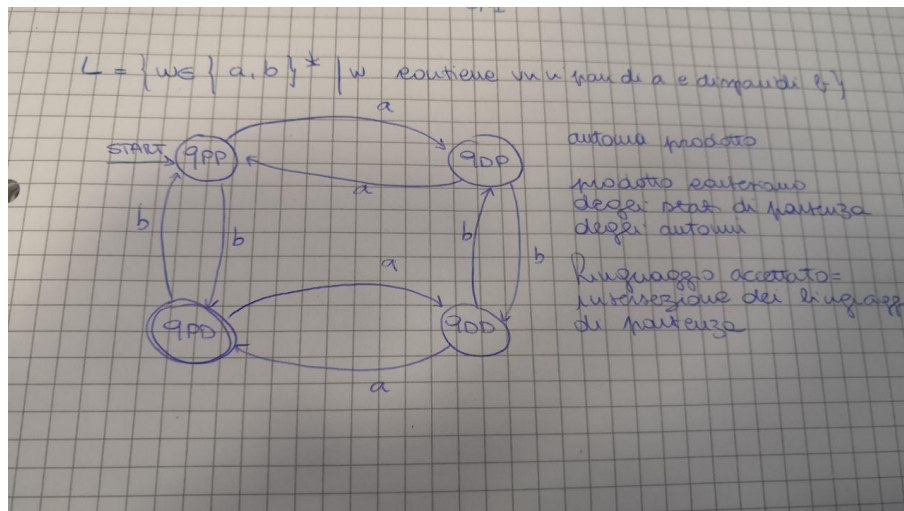 L = { w ∈ { a, b }* | w contiene un n pari di a e dispari di b }
a
START
qPP
qDP
a
b
b
b
b
a
qPD
qDD
a
automa prodotto
prodotto cartesiano
degli stati di partenza
degli automi
linguaggio accettato =
intersezione dei linguagg
di partenza